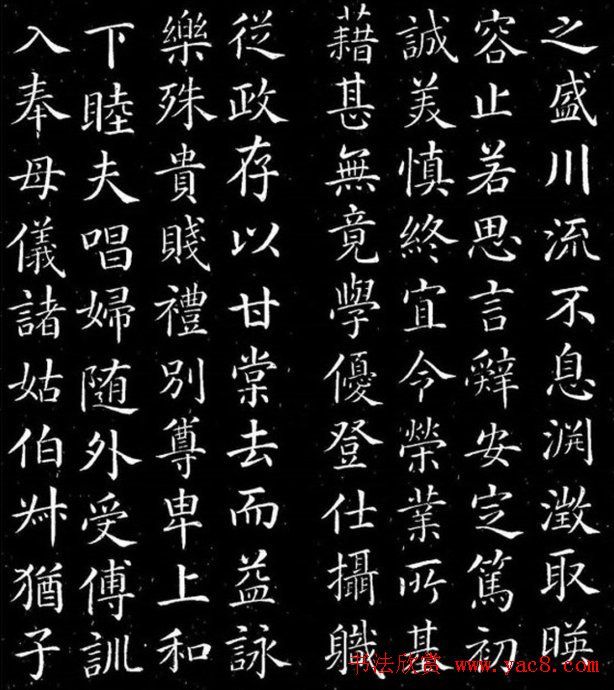 之盛川流不息渊澂取暎
容止若思言辭安定篤初
誠美慎終宜令榮業所基
藉甚無竟學優登仕攝職
從政存以甘棠去而益詠
樂殊貴賤禮別尊卑上和
下睦夫唱婦随外受傅訓
入奉母儀諸姑伯叔猶子
书法欣赏 www.yac8.com